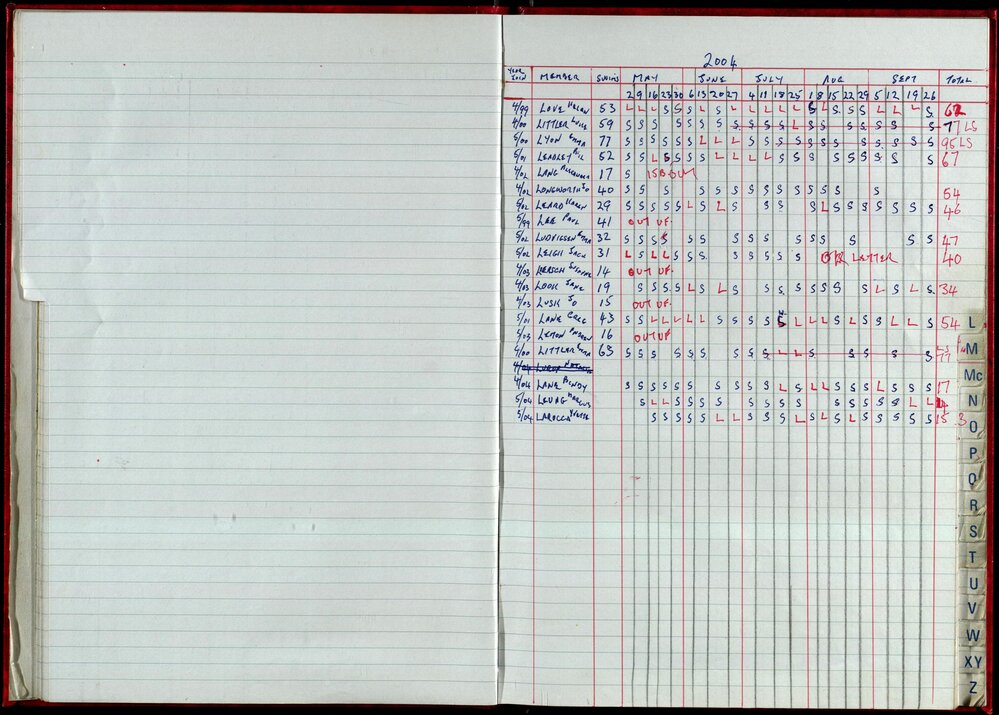 2004
YEAR JOIN MEMBER SWIMS MAY JUNE JULY AUG SEPT TOTAL
2 9 16 23 30 6 13 20 27 4 11 18 25 1 8 15 22 29 5 12 19 26
4/99 LOVE HELEN 53 L L L S S S L S L L L L L L S L S S S L L L S 62
4/00 LITTLER 59 S S S S S S S S S S S S L S S S S S S S 77 LS
5/00 LYON EMMA 77 S S S S S S L L L S S S S S S S S S S S S 95 LS
5/01 LEADLEY 52 S S L S S S S L L L L S S S S S S S S S S 67
4/02 LANG ALEXANDER 17 S ISB OUT
4/02 LONGWORTH JO 40 S S S S S S S S S S S S S S 54
5/02 LEARD KAREN 29 S S S S S L S L S S S S L S S S S S S S 46
5/99 LEE PAUL 41 OUT UF
5/02 LUDVIGSEN EMMA 32 S S S S S S S S S S S S S S S 47
5/02 LEIGH JACK 31 L S L L S S S S S S S S LETTER 40
4/03 LERSCH 14 OUT UF
4/03 LOOK JANE 19 S S S S L S L S S S S S S S S S L S L S 34
4/03 LUSK JO 15 OUT UF
5/01 LANE GREG 43 S S L L L L L S S S S S S L L L S L S S L L S 54
5/03 LEMON ANDREW 16 OUT UF
4/00 LITTLER EMMA 63 S S S S S S S S S L L S S S S S LS 77
4/04
4/04 LANE MINDY S S S S S S S S S S L S L L S S S L S S S 17
5/04 LEUNG MARCUS S L L S S S S S S S S S S S S S L L
5/04 LAROCCA YVETTE S S S S S L L S S S L S L S L S S S S S 15
L
M
Mc
N
O
P
Q
R
S
T
U
V
W
XY
Z